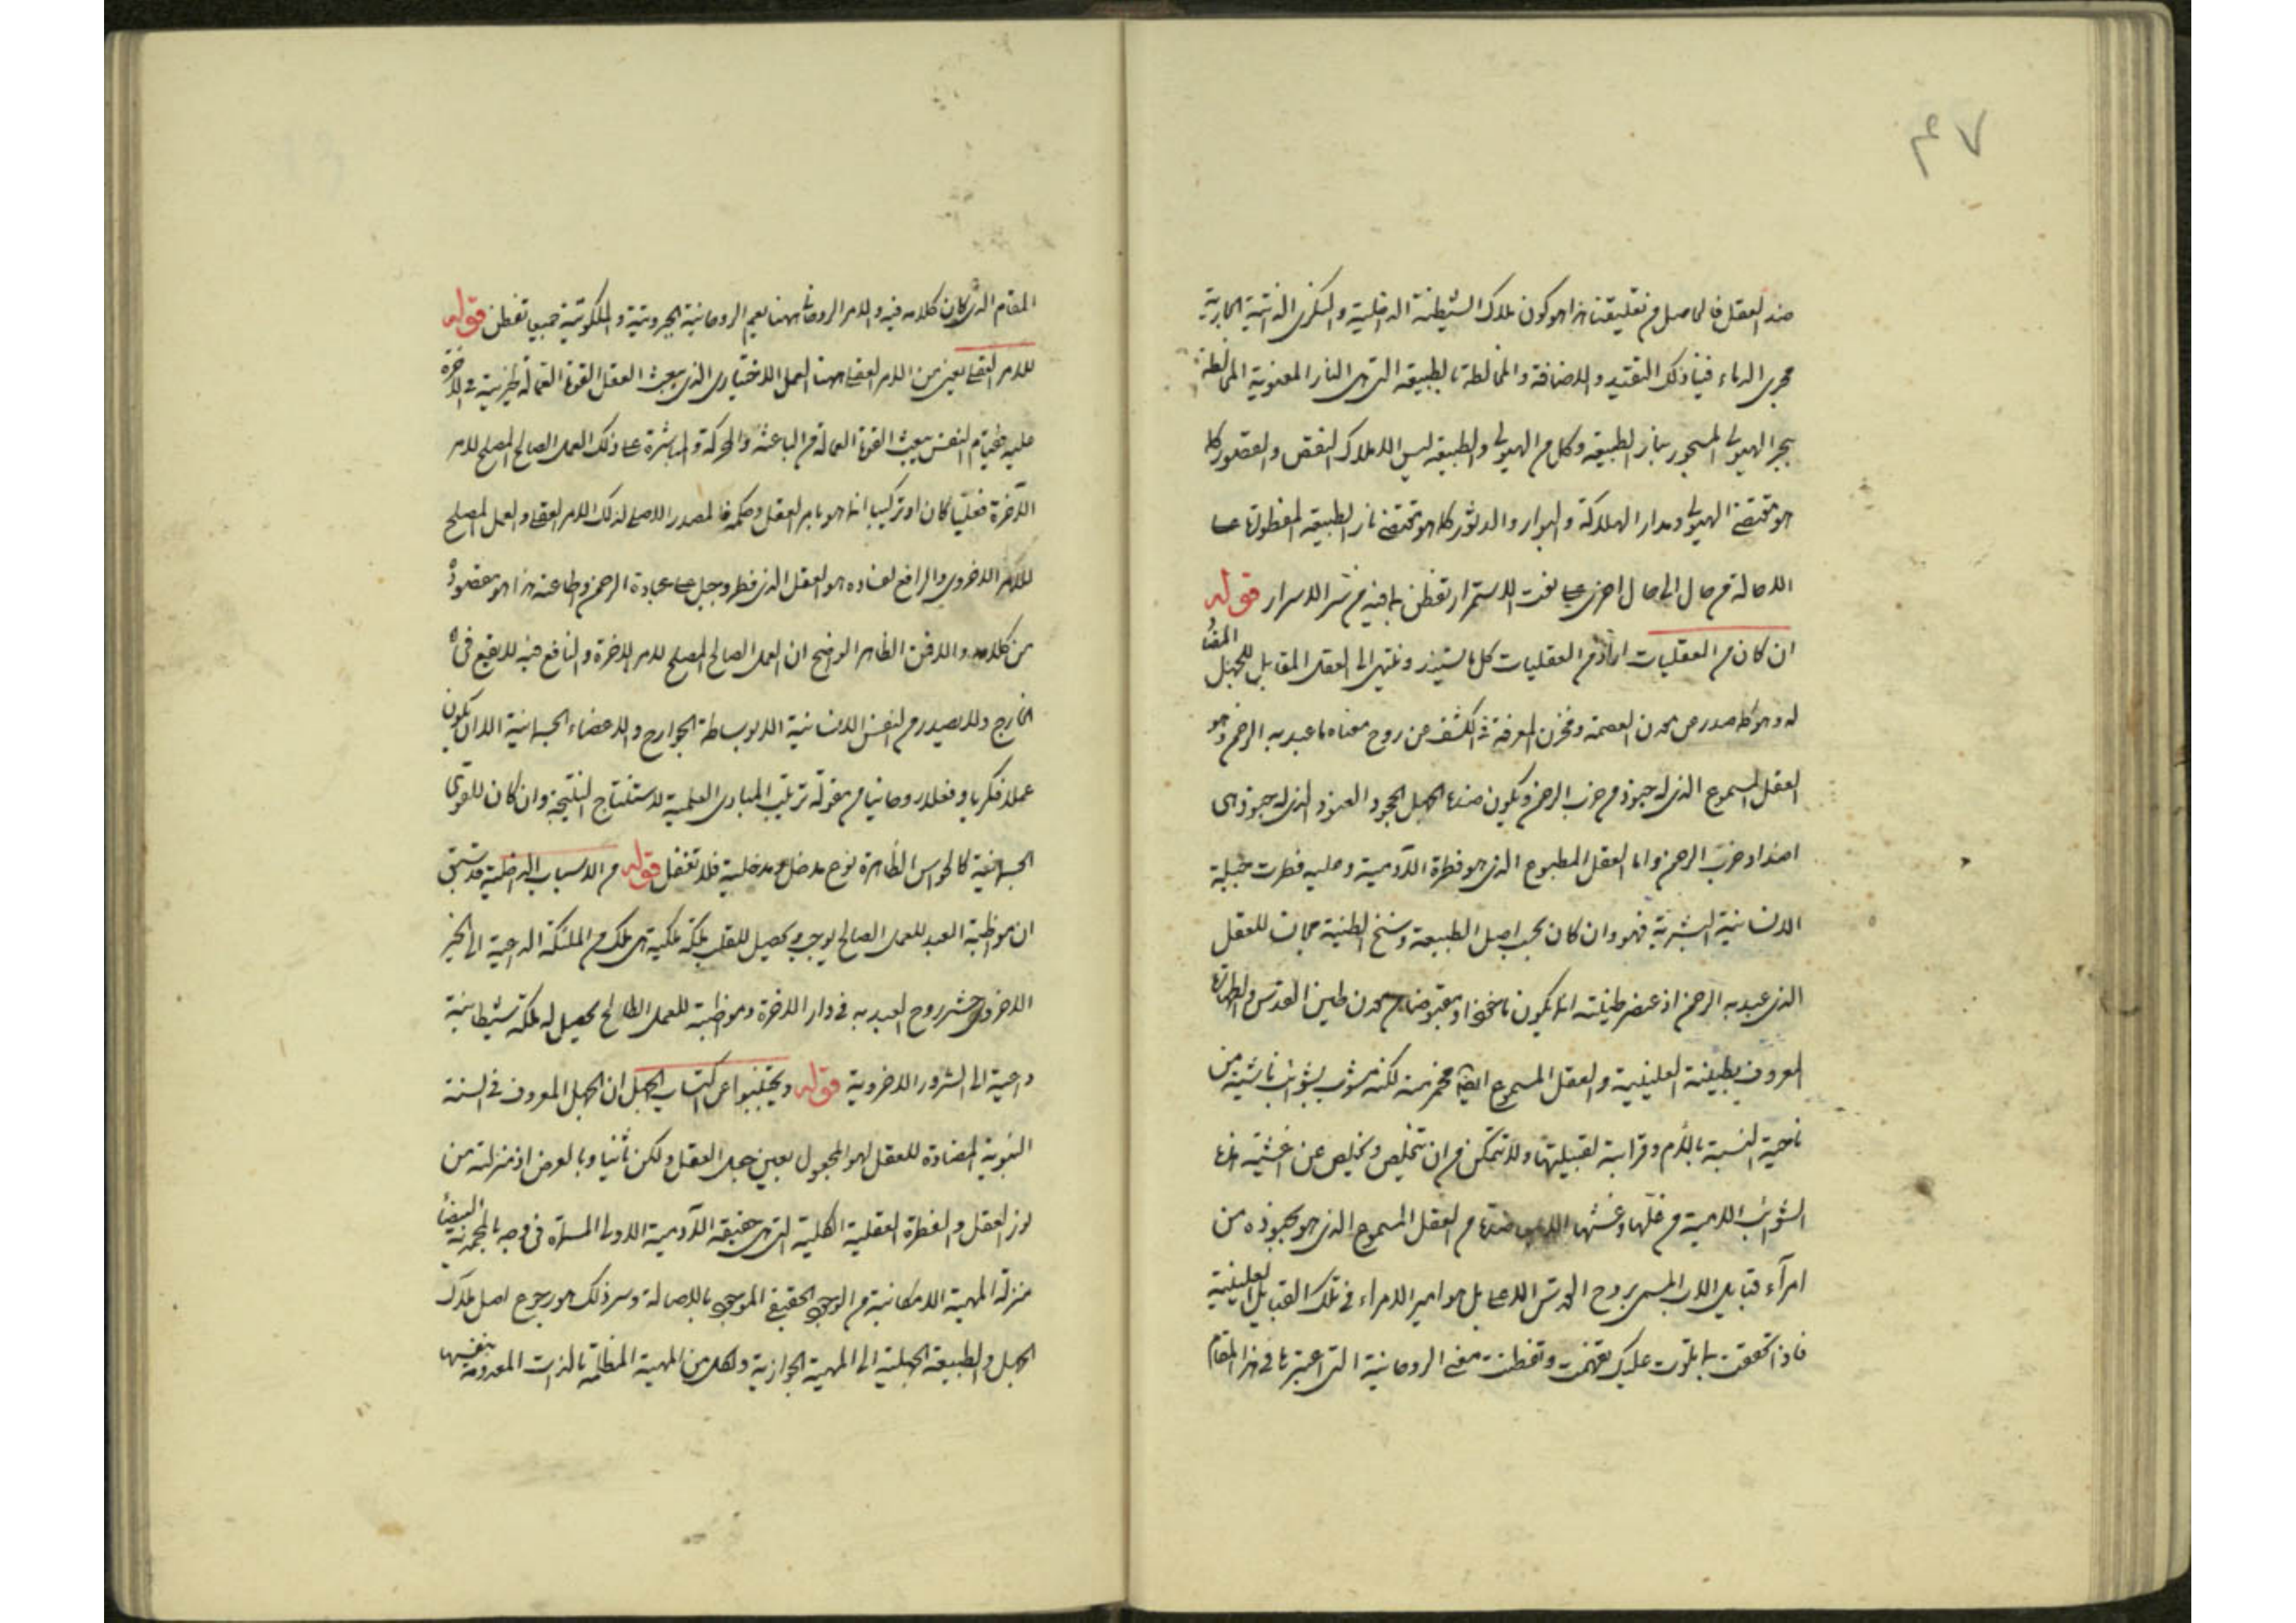 ۴۷
ضد العقل فالحاصل من تعليقتنا هذا هو كون ملاك الشيطنة الداخلية والنكرى الذاتية الجارية
مجرى الدماء فينا ذلك التقييد والاضافة والمخالطة بالطبيعة التى هى النار المعنوية المخالطة
بحر الهيولى المسجور بنار الطبيعة وكل من الهيولى والطبيعة ليس الا ملاك النقص والقصور كما
هو مقتضى الهيولى ومدار الهلاكة والبوار والدثور كما هو مقتضى نار الطبيعة المفطورة على
الاحالة من حال الى حال اخرى على نعت الاستمرار تفطن بما فيه من سر الاسرار قوله
ان كان من العقليات اراد من العقليات كل ما يستند وينتهى الى العقل المقابل للجهل المضاد
له وهو كما صدر عن معدن العصمة ومخزن المعرفة فى الكشف عن روح معناه ما عبد به الرحمن وهو
العقل المسموع الذى له جنود من حزب الرحمن ويكون ضدها الجهل الجحود العنود الذى له جنود هى
اضداد حزب الرحمن واما العقل المطبوع الذى هو فطرة الآدمية وعليه فطرت جبلة
الانسانية البشرية فهو وان كان بحسب اصل الطبيعة وسنخ الطينة مجانس للعقل
الذى عبد به الرحمن اذ عنصر طينته انما يكون ماخوذا ومقبوضا من معدن طين القدس والطهارة
المعروف بطينة العليينية والعقل المسموع ايضا مخمر منه لكنه مشوب بشوائب ناشئة من
ناحية النسبة بالام وقرابة لقبيلتها ولا تتمكن من ان تتخلص وتخلص عن اغشية هذه
الشوائب الامية من غلها وغشها الا من العقل المسموع الذى هو بجنوده من
امرآء قبايل الاب المسمى بروح القدس الاعلى بل هو امير الامراء فى تلك القبايل العليينية
فاذا تحققت بما تلوت عليك تفهمت وتفطنت معنى الروحانية التى اعتبرنا فى هذا المقام
المقام الذى كان كلامه فيه والامر الروحانى ههنا يعم الروحانية الجبروتية والملكوتية جميعا تفطن قوله
للامر العقلى يعنى من الامر العقلى ههنا العمل الاختيارى الذى يبعث العقل القوة العمالة فى الآخرة
عليه فقيام النفس ببعث القوة العمالة من الباعثة والمحركة والمباشرة على ذلك العمل الصالح المصلح لامر
الآخرة فعليا كان او تركيبا انما هو بامر العقل وحكمه فالمصدر الاصلى لذلك الامر العقلى والعمل المصلح
للامر الاخروى والرافع لفساده هو العقل الذى فطر وجبل على عبادة الرحمن وطاعته هذا هو مقصوده
من كلامه والا فمن الظاهر الواضح ان العمل الصالح المصلح لامر الاخرة والنافع فيه لا يقع فى
الخارج ولا يصدر من النفس الانسانية الا بوساطة الجوارح والاعضاء الجسمانية الا ان يكون
عملا فكريا وفعلا روحانيا من مقولة ترتيب المبادى العلمية لاستنتاج النتيجة وان كان للقوى
الجسمانية كالحواس الظاهرة نوع مدخل ومدخلية فلا تغفل قوله من الاسباب الداخلية قد سبق
ان مواظبة العبد للعمل الصالح يوجب تحصيل للقلب ملكة ملكية هى ملك من الملئكة الداعية الى الخير
الاخروى حشر روح العبد به فى دار الاخرة ومواظبة للعمل الطالح تحصيل له ملكة شيطانية
داعية الى الشرور الاخروية قوله ويجتنبوا عن اكتساب الجهل ان الجهل المعروف فى السنة
النبوية المضادة للعقل لهو المجعول بعين جعل العقل ولكن ثانيا وبالعرض اذ منزلته من
نور العقل والفطرة العقلية الكلية التى هى حقيقة الآدمية الاولى المسماة فى وجه بالمحمدية البيضاء
منزلة المهية الامكانية من الوجود الحقيقى الموجود بالاصالة وسر ذلك هو رجوع اصل ملاك
الجهل والطبيعة الجهلية الى المهية الجوازية ولكل من المهية المظلمة بالذات المعدومة بنفسها